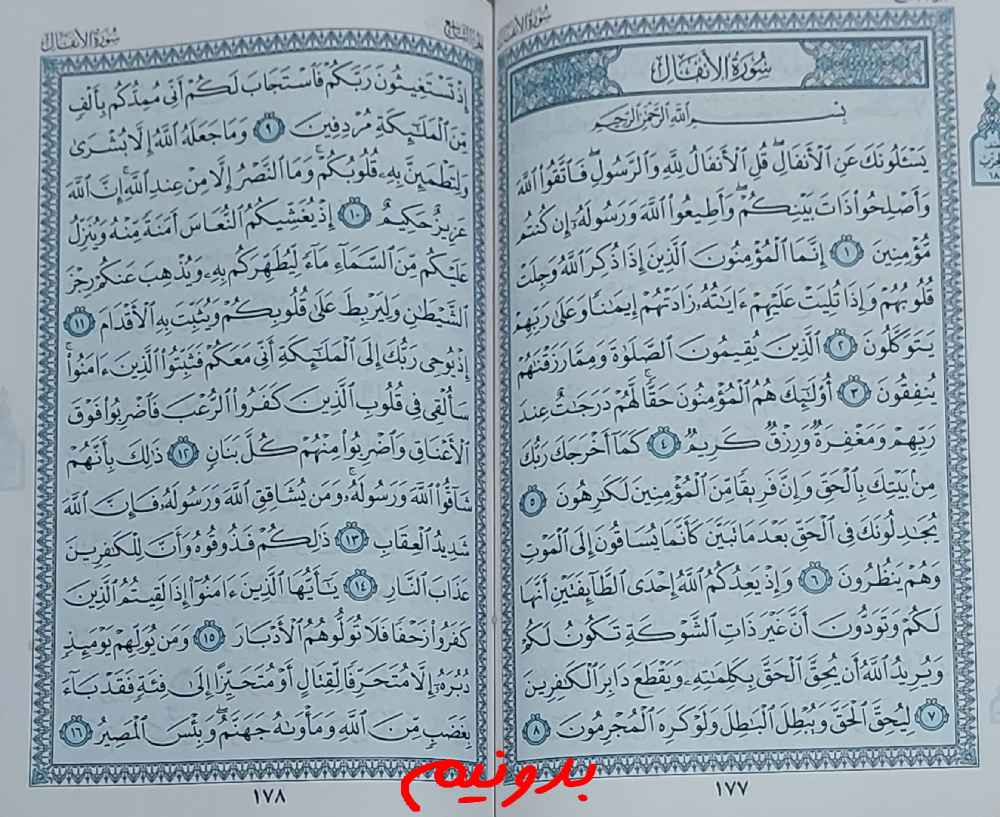 سُورَةُ الأَنفَالِ
سُورَةُ الأَنفَالِ
بِسْمِ اللَّهِ الرَّحْمَٰنِ الرَّحِيمِ
يَسْـَٔلُونَكَ عَنِ الْأَنفَالِ ۖ قُلِ الْأَنفَالُ لِلَّهِ وَالرَّسُولِ ۖ فَاتَّقُوا اللَّهَ
وَأَصْلِحُوا ذَاتَ بَيْنِكُمْ ۖ وَأَطِيعُوا اللَّهَ وَرَسُولَهُ إِن كُنتُم
مُّؤْمِنِينَ ١ إِنَّمَا الْمُؤْمِنُونَ الَّذِينَ إِذَا ذُكِرَ اللَّهُ وَجِلَتْ
قُلُوبُهُمْ وَإِذَا تُلِيَتْ عَلَيْهِمْ ءَايَٰتُهُ زَادَتْهُمْ إِيمَٰنًا وَعَلَىٰ رَبِّهِمْ
يَتَوَكَّلُونَ ٢ الَّذِينَ يُقِيمُونَ الصَّلَوٰةَ وَمِمَّا رَزَقْنَٰهُمْ
يُنفِقُونَ ٣ أُو۟لَٰٓئِكَ هُمُ الْمُؤْمِنُونَ حَقًّا ۚ لَّهُمْ دَرَجَٰتٌ عِندَ
رَبِّهِمْ وَمَغْفِرَةٌ وَرِزْقٌ كَرِيمٌ ٤ كَمَا أَخْرَجَكَ رَبُّكَ
مِنۢ بَيْتِكَ بِالْحَقِّ وَإِنَّ فَرِيقًا مِّنَ الْمُؤْمِنِينَ لَكَٰرِهُونَ ٥
يُجَٰدِلُونَكَ فِي الْحَقِّ بَعْدَ مَا تَبَيَّنَ كَأَنَّمَا يُسَاقُونَ إِلَى الْمَوْتِ
وَهُمْ يَنظُرُونَ ٦ وَإِذْ يَعِدُكُمُ اللَّهُ إِحْدَى الطَّآئِفَتَيْنِ أَنَّهَا
لَكُمْ وَتَوَدُّونَ أَنَّ غَيْرَ ذَاتِ الشَّوْكَةِ تَكُونُ لَكُمْ
وَيُرِيدُ اللَّهُ أَن يُحِقَّ الْحَقَّ بِكَلِمَٰتِهِ وَيَقْطَعَ دَابِرَ الْكَٰفِرِينَ
٧ لِيُحِقَّ الْحَقَّ وَيُبْطِلَ الْبَٰطِلَ وَلَوْ كَرِهَ الْمُجْرِمُونَ ٨
١٧٧
سُورَةُ الأَنفَالِ
إِذْ تَسْتَغِيثُونَ رَبَّكُمْ فَاسْتَجَابَ لَكُمْ أَنِّي مُمِدُّكُم بِأَلْفٍ
مِّنَ الْمَلَٰٓئِكَةِ مُرْدِفِينَ ٩ وَمَا جَعَلَهُ اللَّهُ إِلَّا بُشْرَىٰ
وَلِتَطْمَئِنَّ بِهِ قُلُوبُكُمْ ۚ وَمَا النَّصْرُ إِلَّا مِنْ عِندِ اللَّهِ ۚ إِنَّ اللَّهَ
عَزِيزٌ حَكِيمٌ ١٠ إِذْ يُغَشِّيكُمُ النُّعَاسَ أَمَنَةً مِّنْهُ وَيُنَزِّلُ
عَلَيْكُم مِّنَ السَّمَآءِ مَآءً لِّيُطَهِّرَكُم بِهِ وَيُذْهِبَ عَنكُمْ رِجْزَ
الشَّيْطَٰنِ وَلِيَرْبِطَ عَلَىٰ قُلُوبِكُمْ وَيُثَبِّتَ بِهِ الْأَقْدَامَ ١١
إِذْ يُوحِي رَبُّكَ إِلَى الْمَلَٰٓئِكَةِ أَنِّي مَعَكُمْ فَثَبِّتُوا الَّذِينَ ءَامَنُوا ۚ
سَأُلْقِي فِي قُلُوبِ الَّذِينَ كَفَرُوا الرُّعْبَ فَاضْرِبُوا فَوْقَ
الْأَعْنَاقِ وَاضْرِبُوا مِنْهُمْ كُلَّ بَنَانٍ ١٢ ذَٰلِكَ بِأَنَّهُمْ
شَآقُّوا اللَّهَ وَرَسُولَهُ ۚ وَمَن يُشَاقِقِ اللَّهَ وَرَسُولَهُ فَإِنَّ اللَّهَ
شَدِيدُ الْعِقَابِ ١٣ ذَٰلِكُمْ فَذُوقُوهُ وَأَنَّ لِلْكَٰفِرِينَ
عَذَابَ النَّارِ ١٤ يَٰٓأَيُّهَا الَّذِينَ ءَامَنُوا إِذَا لَقِيتُمُ الَّذِينَ
كَفَرُوا زَحْفًا فَلَا تُوَلُّوهُمُ الْأَدْبَارَ ١٥ وَمَن يُوَلِّهِمْ يَوْمَئِذٍ
دُبُرَهُ إِلَّا مُتَحَرِّفًا لِّقِتَالٍ أَوْ مُتَحَيِّزًا إِلَىٰ فِئَةٍ فَقَدْ بَآءَ
بِغَضَبٍ مِّنَ اللَّهِ وَمَأْوَىٰهُ جَهَنَّمُ ۖ وَبِئْسَ الْمَصِيرُ ١٦
١٧٨
بدونیم